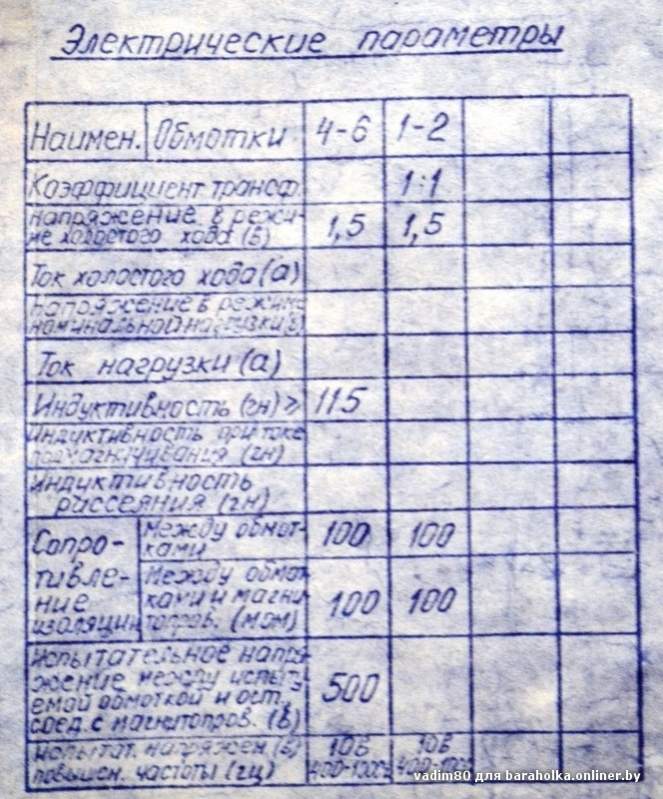 Электрические параметры
Наимен. Обмотки 4-6 1-2
Коэффициент трансф. 1:1
Напряжение в режи-
ме холостого хода (В) 1,5 1,5
Ток холостого хода (а)
Напряжение в режиме
номинальной нагрузки (в)
Ток нагрузки (а)
Индуктивность (гн) ≥ 115
Индуктивность при токе
подмагничивания (гн)
Индуктивность
рассеяния (гн)
Сопро-
тивле-
ние
изоляции
Между обмот-
ками 100 100
Между обмот
ками и магни
топров. (мом) 100 100
Испытательное напря-
жение между испыту
емой обмоткой и ост.,
соед. с магнитопров. (В) 500
Испытат. напряжен. (В) 10в 10в
повышен. частоты (гц) 400-1000гц 400-1000
vadim80 для baraholka.onliner.by